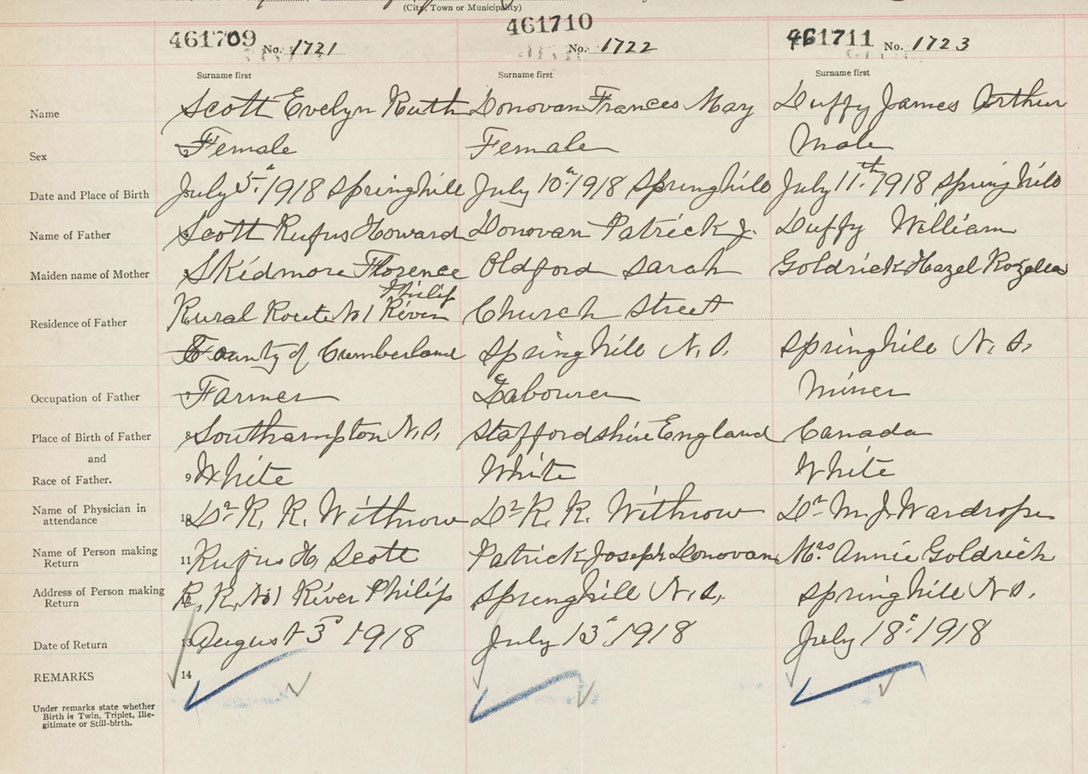 (City, Town or Municipality)
461709 No. 1721
461710 No. 1722
461711 No. 1723
Surname first Surname first Surname first
Name Scott Evelyn Ruth Donovan Frances May Duffy James Arthur
Sex Female Female Male
Date and Place of Birth July 5th 1918 Springhill July 10th 1918 Springhill July 11th 1918 Springhill
Name of Father Scott Rufus Howard Donovan Patrick J. Duffy William
Maiden name of Mother Skidmore Florence Oldford Sarah Goldrick Hazel
Philip
Residence of Father Rural Route No 1 River Church Street
County of Cumberland Springhill N.S. Springhill N.S.
Occupation of Father Farmer Labourer Miner
Place of Birth of Father 8 Southampton N.S. Staffordshire England Canada
and
Race of Father. 9 White White White
Name of Physician in
attendance 10 Dr R. R. Withrow Dr R. R. Withrow Dr M. J. Wardrope
Name of Person making
Return 11 Rufus H. Scott Patrick Joseph Donovan Mrs Annie Goldrich
Address of Person making
Return 12 R. R. No 1 River Philip Springhill N.S. Springhill N.S.
Date of Return 13 August 3rd 1918 July 13th 1918 July 18th 1918
REMARKS 14
Under remarks state whether
Birth is Twin, Triplet, Ille-
gitimate or Still-birth.